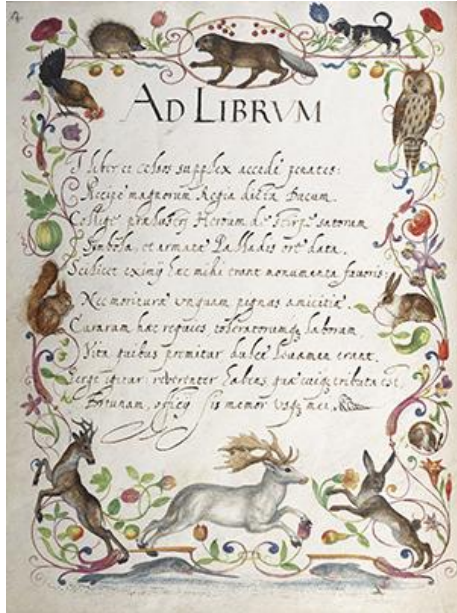 AD LIBRVM
I liber et celsos supplex accede penates:
Accipe magnorum Regia dicta Ducum.
Collige præclustrq Heroum de stirpe satorum
Symbola, et armatæ Palladis arte data.
Scilicet eximij hæc mihi erant monumenta fauoris:
Nec moritura vnquam pignas amicitiæ
Curarum hæc requies toleratorumq laborum,
Vita quibus premitur dulce leuamen erant.
Perge igitur: reuerenter habens, quæ cuiq tributa est
Fortunam, officij sis memor vsq mei.